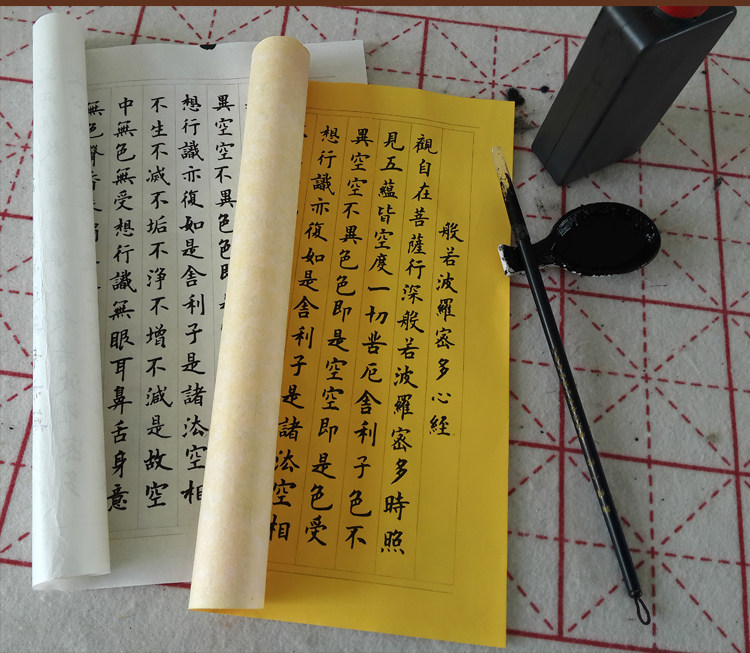 般若波羅密多心經
觀自在菩薩行深般若波羅密多時照
見五蘊皆空度一切苦厄舍利子色不
異空空不異色色即是空空即是色受
想行識亦復如是舍利子是諸法空相
異空空不異色色即是
想行識亦復如是舍利子是諸法空相
不生不滅不垢不淨不增不減是故空
中無色無受想行識無眼耳鼻舌身意
無色聲香